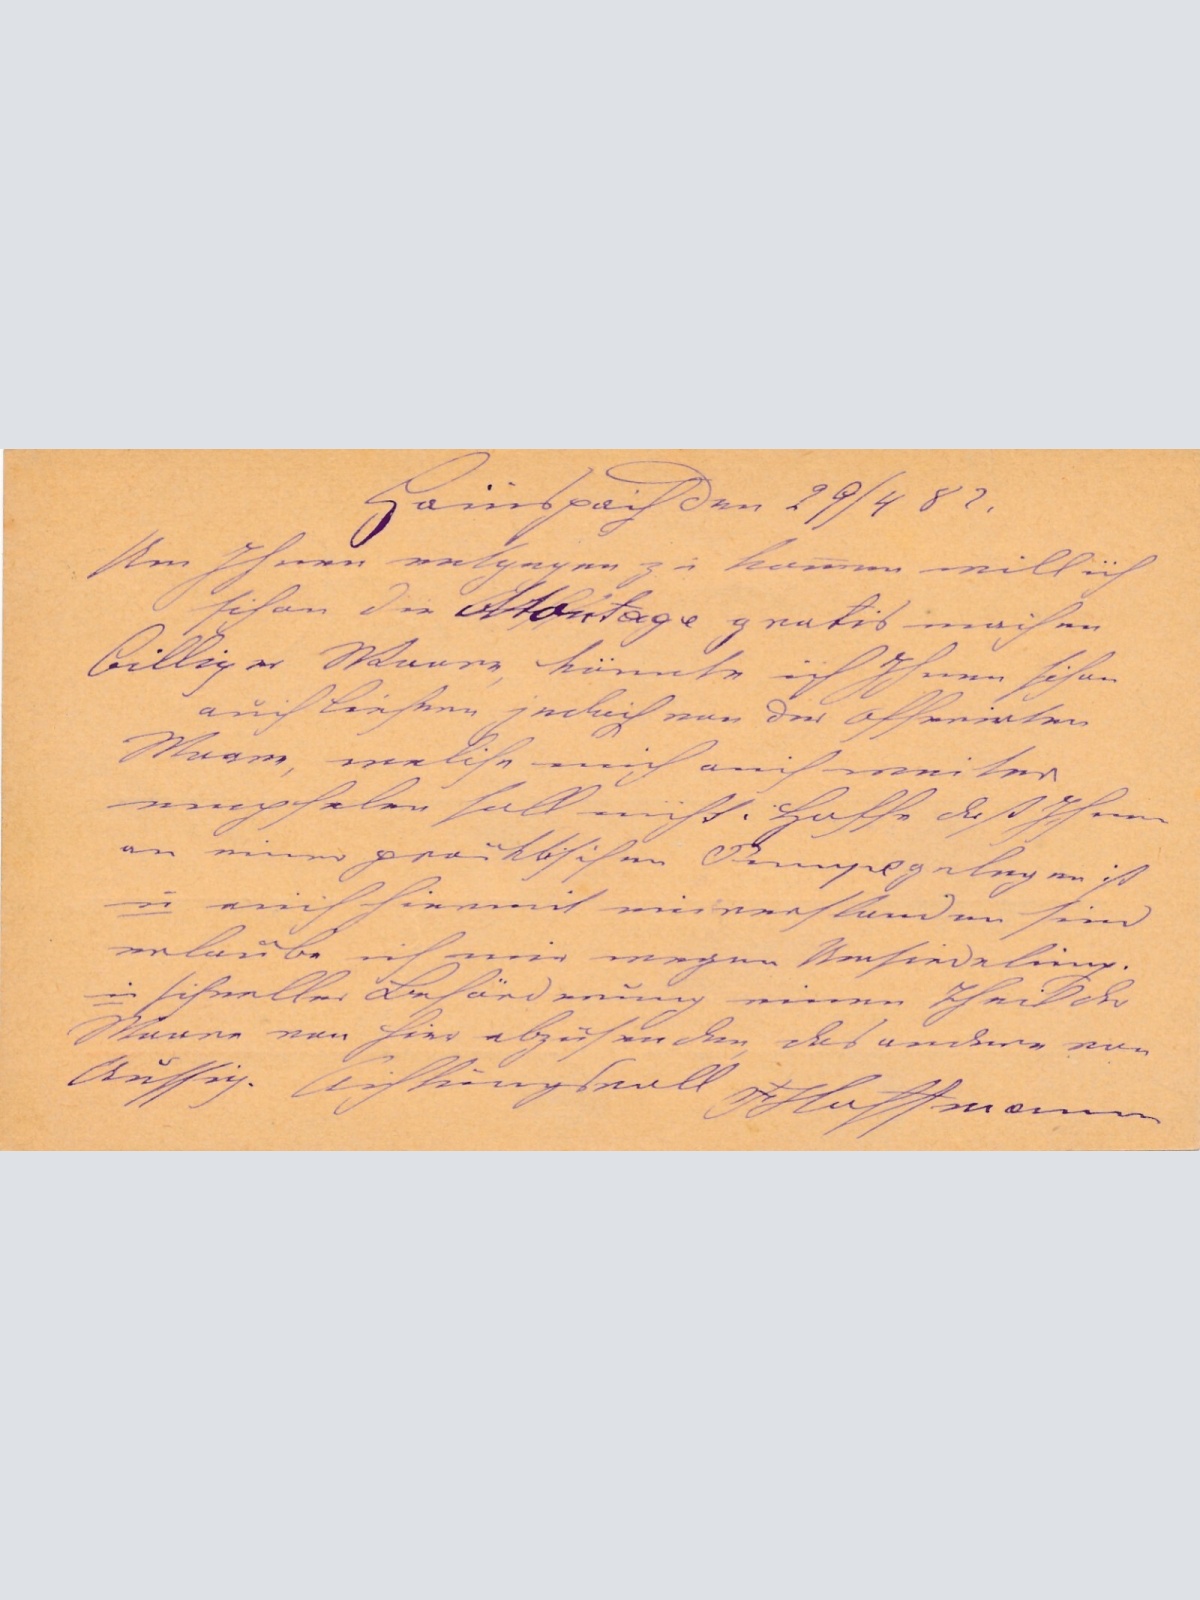 Hainspach den 29/4 82.
Um Ihnen entgegen zu kom̅en will ich
schon die Montage gratis machen
billiger Waare, könnte ich Ihnen schon
auch liefern jedoch von der offerirten
Waare, welche mich auch weiter
empfelen soll nicht. Hoffe daß Ihnen
an einer practischen Pumpe gelegen ist
u auch hiermit einverstanden sind
erlaube ich mir wegen
u schneller Beförderung einen Theil der
Waare von hier abzusenden, das andere von
Aussig. Achtungsvoll Hoffmann